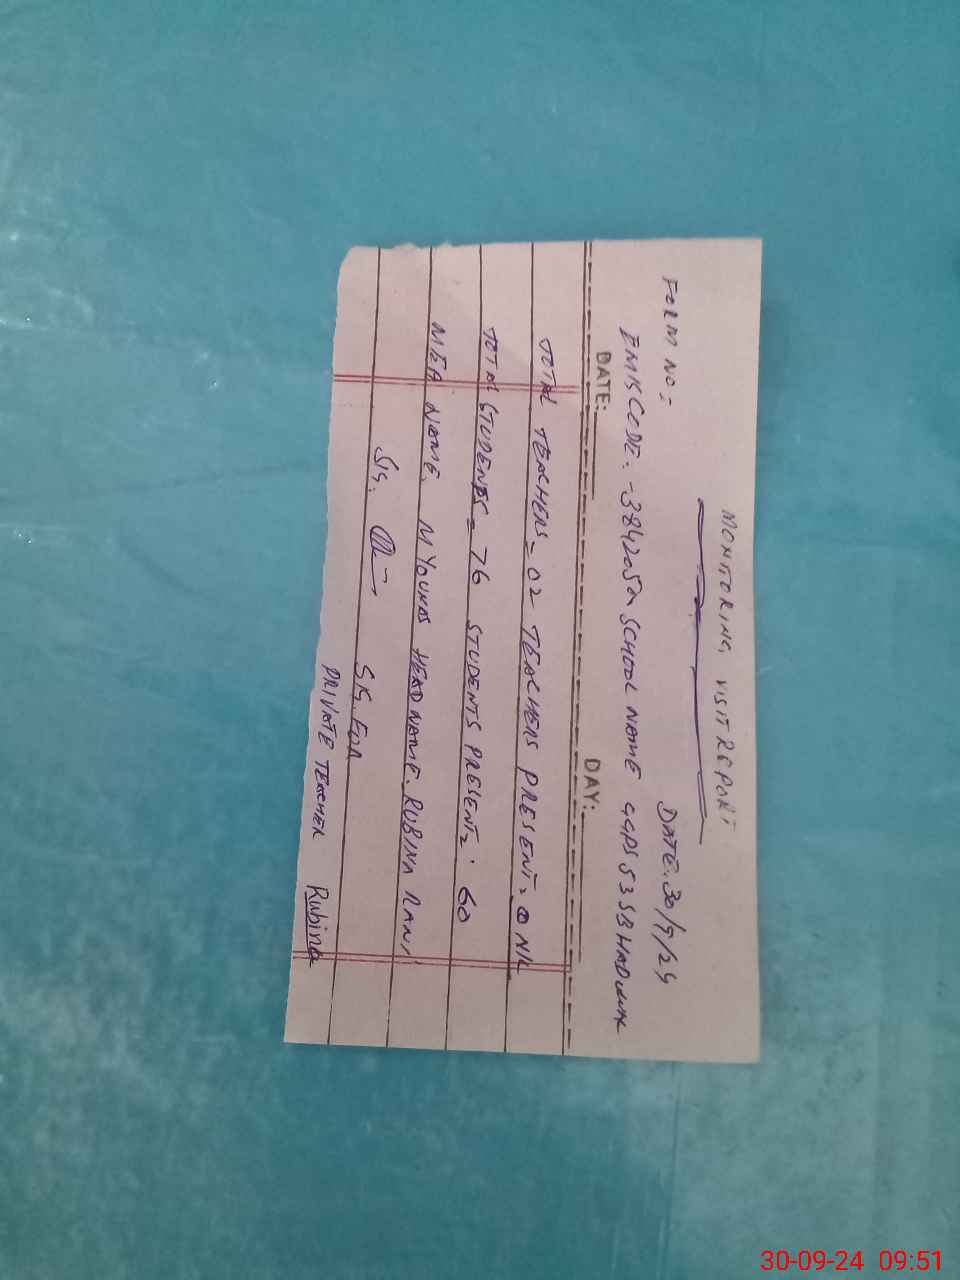 MONITORING VISIT REPORT
FORM NO:- DATE. 30/9/24
EMIS CODE:- SCHOOL NAME GGPS 53 SB
DATE: DAY:
TOTAL TEACHERS = 02 TEACHERS PRESENT = NIL
TOTAL STUDENTS = 76 STUDENTS PRESENT = 60
MEA NAME. M YOUNAS HEAD NAME. RUBINA RANI
SIG. SIG FOR
PRIVATE TEACHER Rubina
30-09-24 09:51